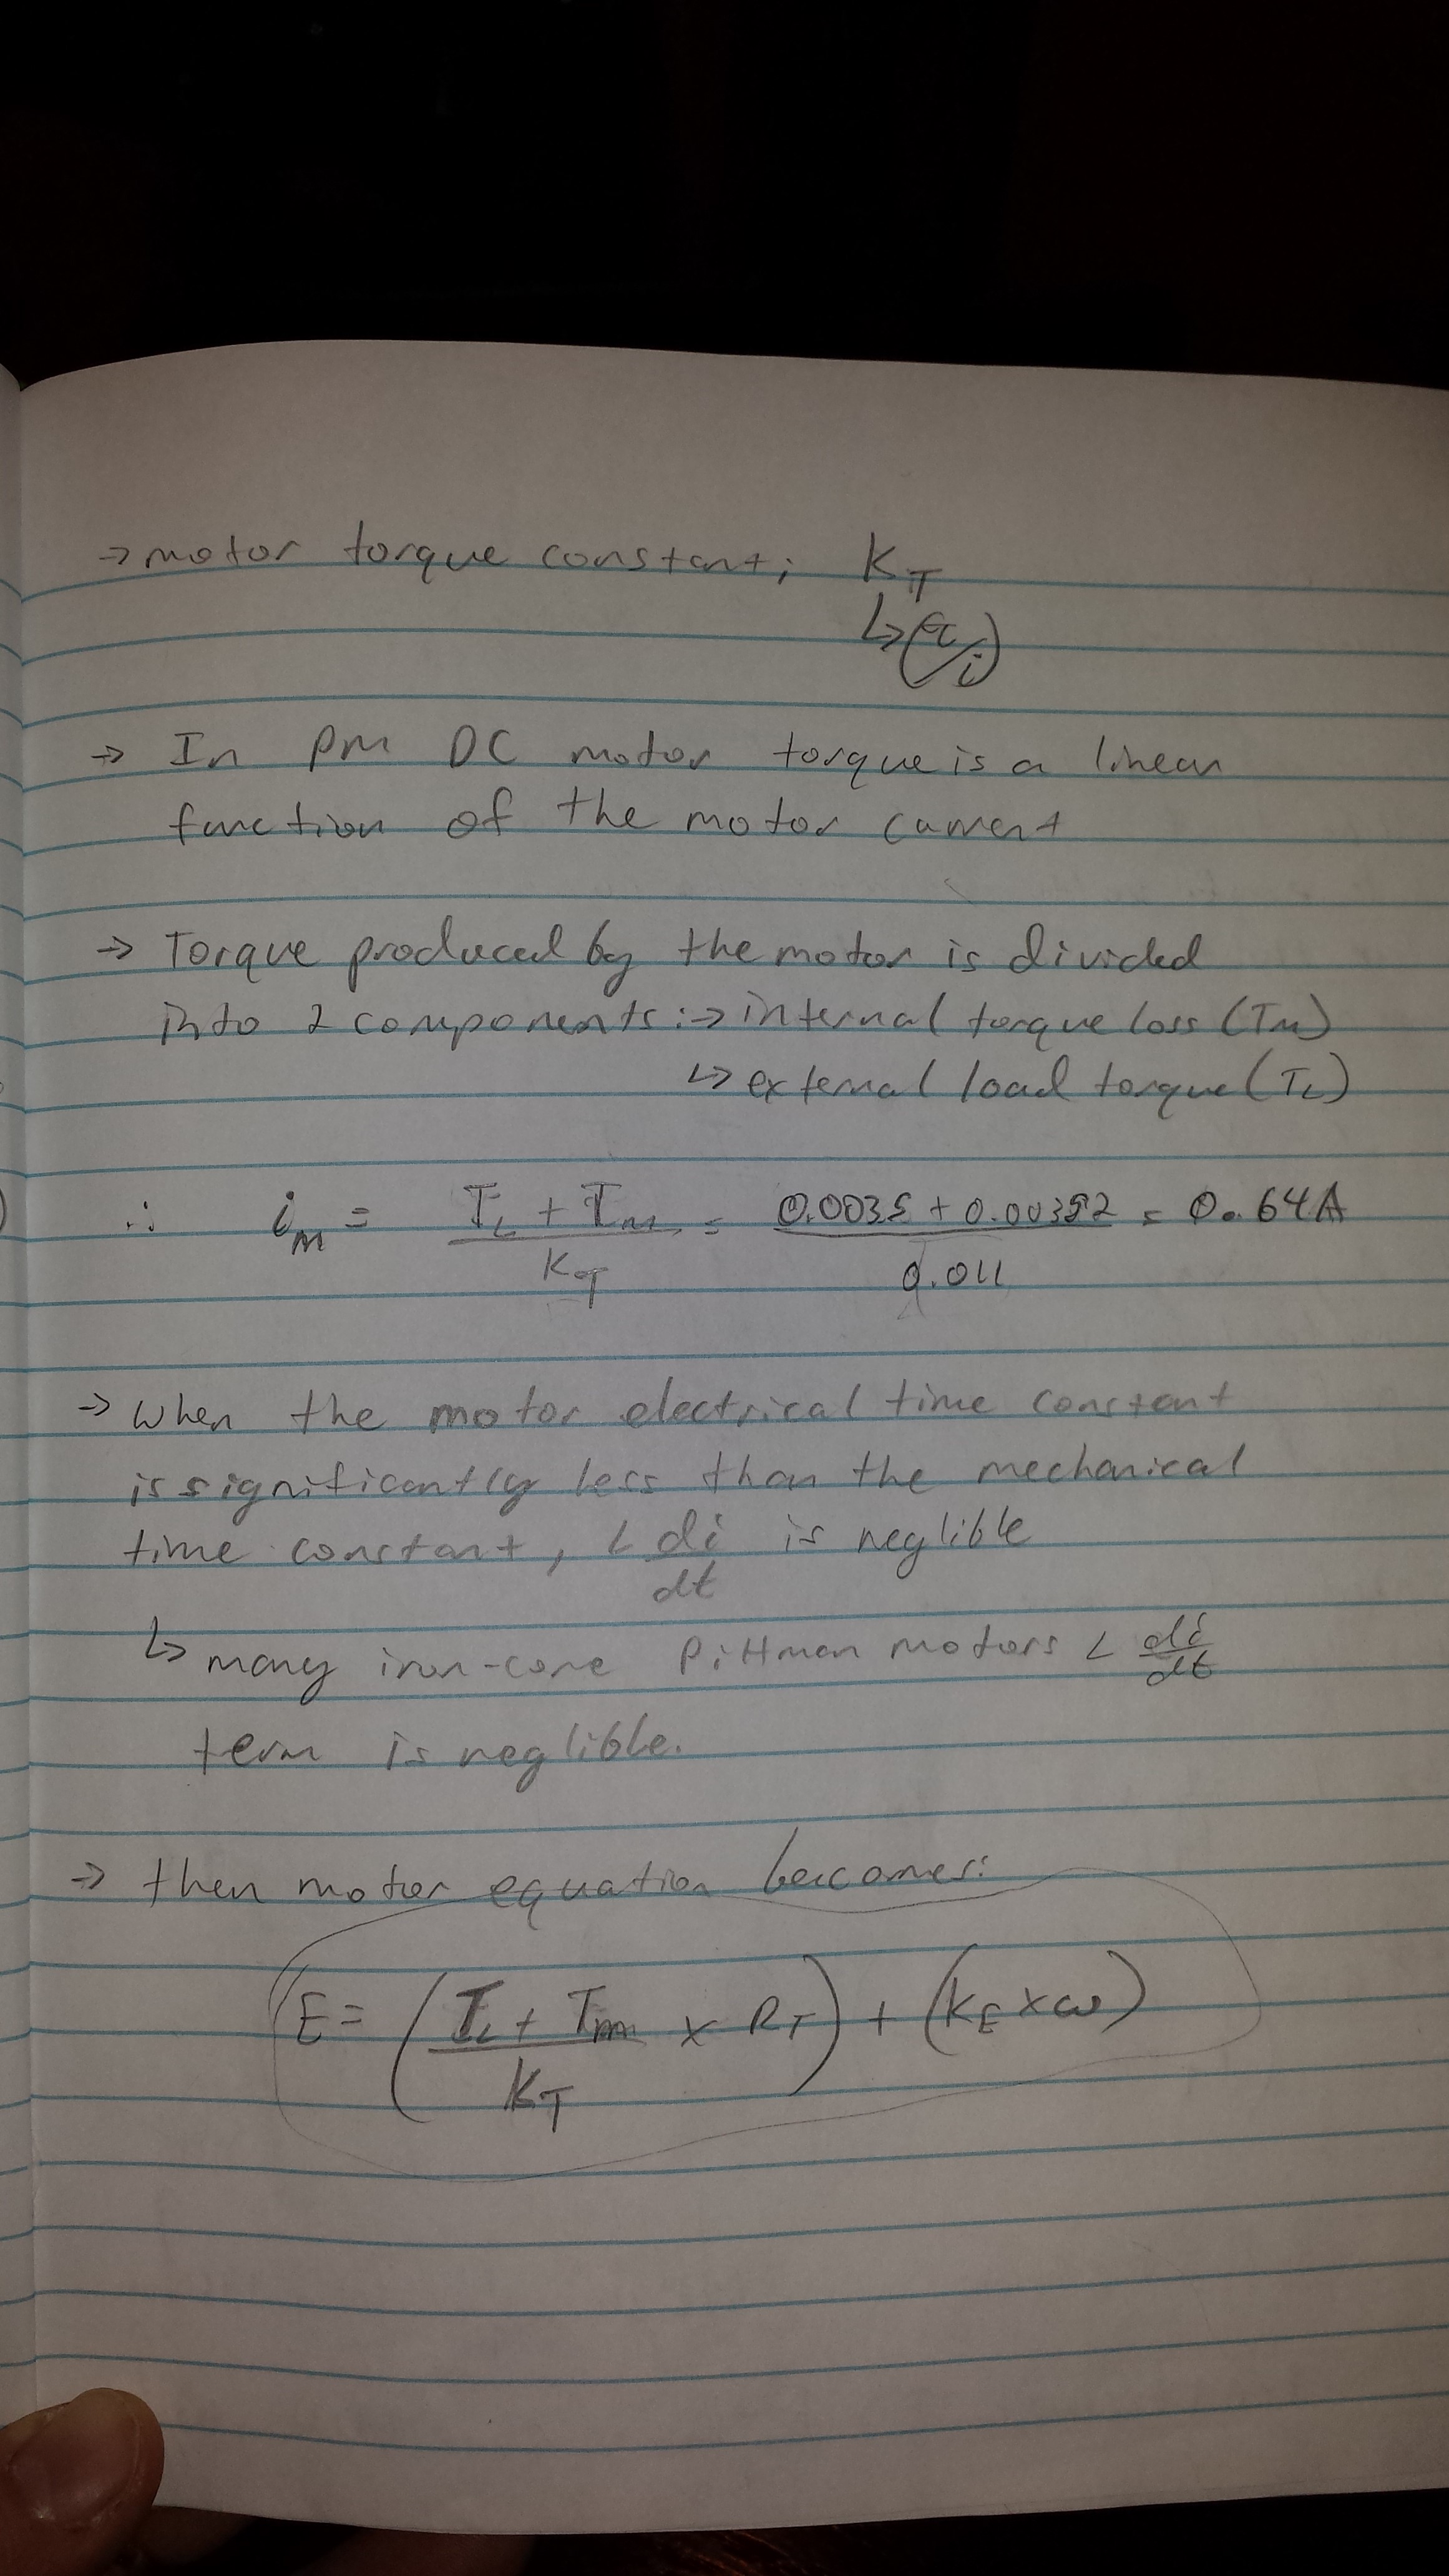 → motor torque constant; K_T
↳ (τ/i)
→ In PM DC motor torque is a linear
function of the motor current
→ Torque produced by the motor is divided
into 2 components: → internal torque loss (T_M)
↳ external load torque (T_L)
∴ i_m = (T_L + T_m)/K_T = (0.0035 + 0.00352)/0.011 = 0.64A
→ when the motor electrical time constant
is significantly less than the mechanical
time constant, L di/dt is neglible
↳ many iron-core Pittman motors L di/dt
term is neglible.
→ then motor equation becomes:
E = ((T_L + T_m)/K_T × R_T) + (K_E × ω)